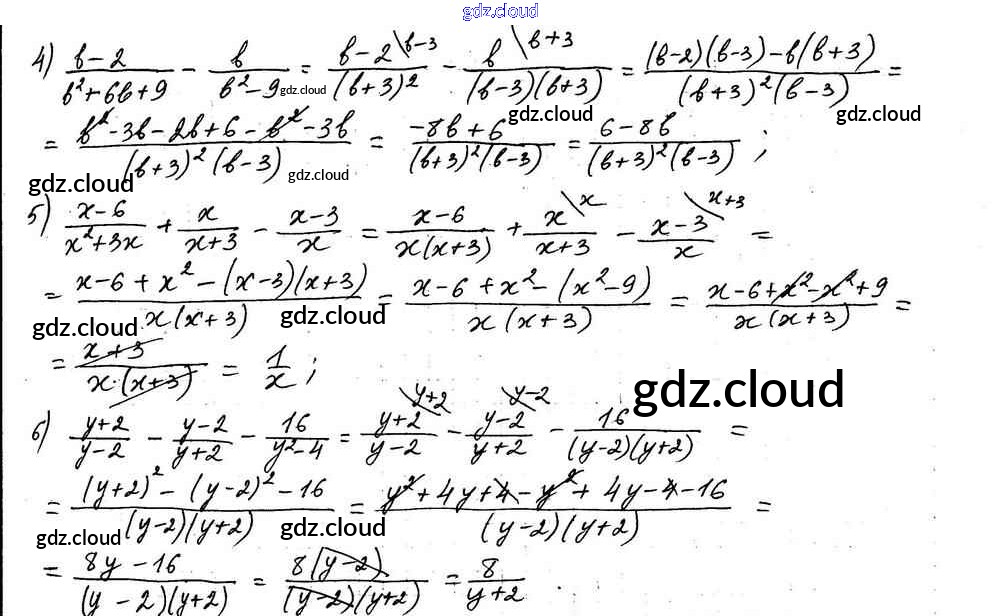 gdz.cloud
4) (b-2)/(b²+6b+9) - b/(b²-9) = (b-2\b-3)/(b+3)² - (b\b+3)/((b-3)(b+3)) = ((b-2)(b-3)-b(b+3))/((b+3)²(b-3)) =
gdz.cloud
gdz.cloud gdz.cloud
= (b²-3b-2b+6-b²-3b)/((b+3)²(b-3)) = (-8b+6)/((b+3)²(b-3)) = (6-8b)/((b+3)²(b-3)) ;
gdz.cloud gdz.cloud
5) (x-6)/(x²+3x) + x/(x+3) - (x-3)/x = (x-6)/(x(x+3)) + (x\x)/(x+3) - (x-3\x+3)/x =
= (x-6+x²-(x-3)(x+3))/(x(x+3)) = (x-6+x²-(x²-9))/(x(x+3)) = (x-6+x²-x²+9)/(x(x+3)) =
gdz.cloud gdz.cloud
= (x+3)/(x·(x+3)) = 1/x ;
gdz.cloud
6) (y+2)/(y-2) - (y-2)/(y+2) - 16/(y²-4) = (y+2\y+2)/(y-2) - (y-2\y-2)/(y+2) - 16/((y-2)(y+2)) =
= ((y+2)²-(y-2)²-16)/((y-2)(y+2)) = (y²+4y+4-y²+4y-4-16)/((y-2)(y+2)) =
gdz.cloud gdz.cloud
= (8y-16)/((y-2)(y+2)) = (8(y-2))/((y-2)(y+2)) = 8/(y+2) .